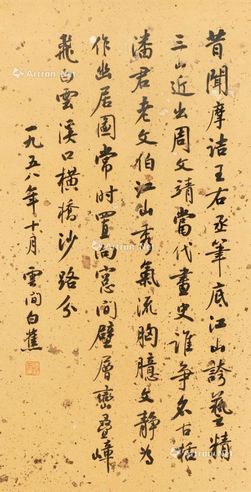 昔聞摩詰王右丞筆底江山誇藝精
三山近出周文靖當代畫史誰爭名古括
潘君老文伯江山秀氣流胸臆文靜為
作幽居圖常時置向窓間壁層巒疊嶂
飛白雲溪口橫橋沙路分
一九五八年十月雲間白蕉